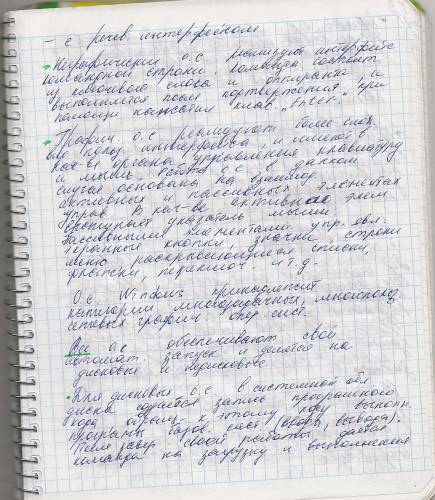 - с речев. интерфейсом
Неграфические о.с реализуют интерфейс
командной строки. Команда состоит
из ключевого слова и операнта, и
выполняется после подтверждения при
помощи нажатия клав. „Enter."
Графич. о.с реализуют более слож.
интерфейса, и имеют в
кач-ве органа управления клавиатуру
и мышь. Работа о.с в данном
случае основана на взаимод.
активных и пассивных элементах
управ. В кач-ве активного элем
выступает указатель мыши
пассивными элементами упр. явл.
экранные кнопки, значки, строки
меню раскрывающиеся списки,
флажки, переключ. и т.д.
О.с. Windows принадлежит
категории многозадачных, многопольз.
сетевых графич. опер. сист.
Все о.с обеспечивают свой
автомат. запуск и делятся на
дисковые и недисковые.
Для дисковых о.с в системной обл.
диска создаётся запись программного
кода обращ. к этому коду выполн.
программы базов. сист (ввода, вывода).
своей работы даётся
команда на загрузку и выполнения